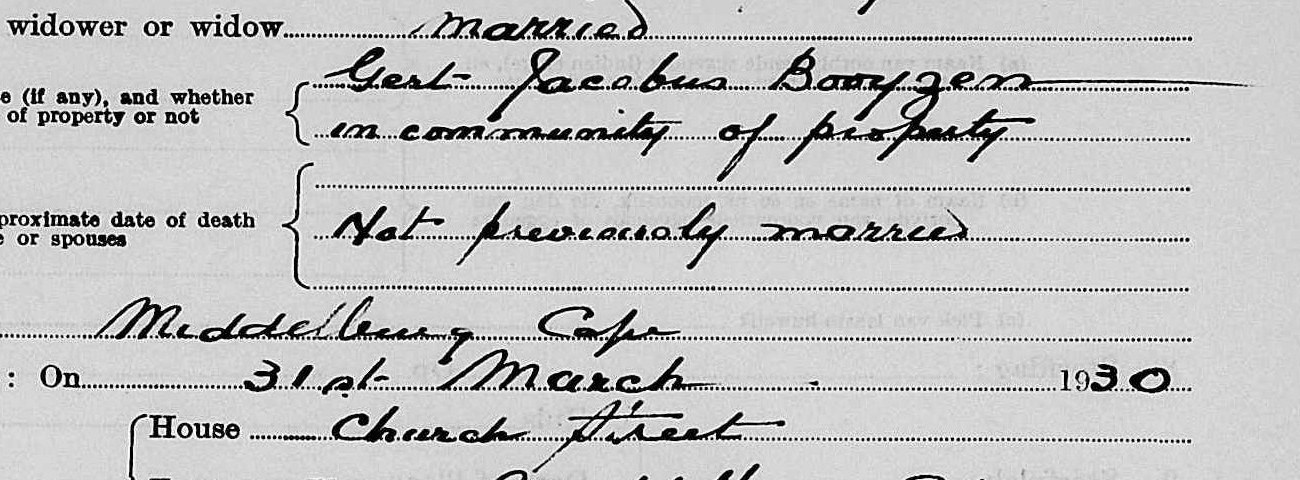 widower or widow married
e (if any), and whether Gert Jacobus Booyzen
of property or not in community of property
proximate date of death
e or spouses Not previously married
Middelburg Cape
: On 31st March 1930
House Church Street